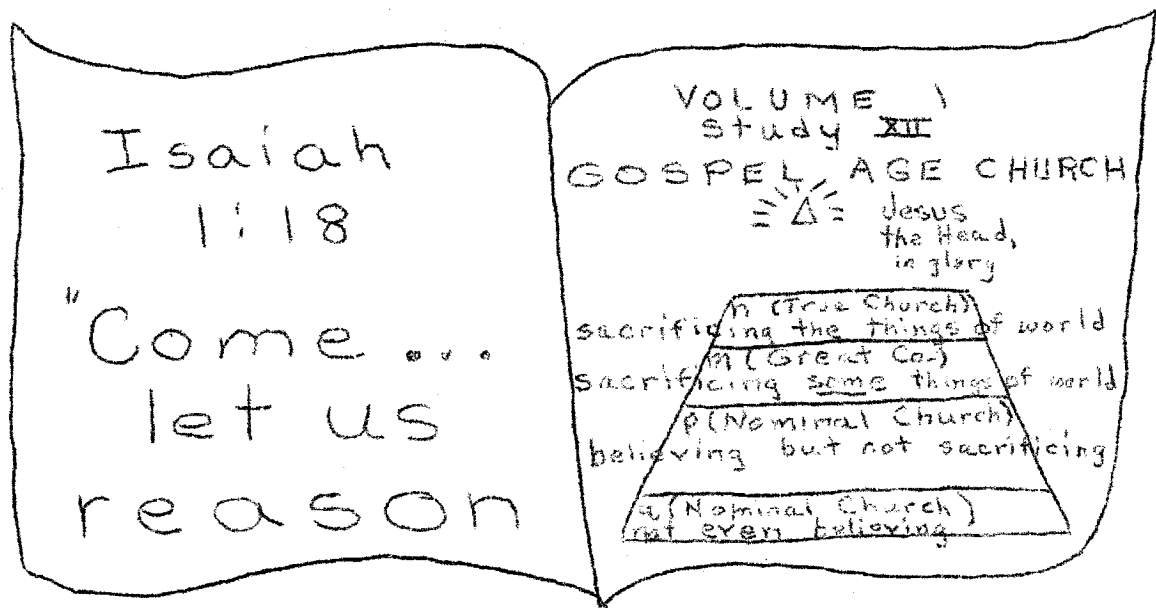 Isaiah
1:18
"Come...
let us
reason
VOLUME 1
Study XII
GOSPEL AGE CHURCH
Jesus
the Head,
in glory
n (True Church)
sacrificing the things of world
m (Great Co.)
sacrificing some things of world
p (Nominal Church)
believing but not sacrificing
q (Nominal Church)
not even believing